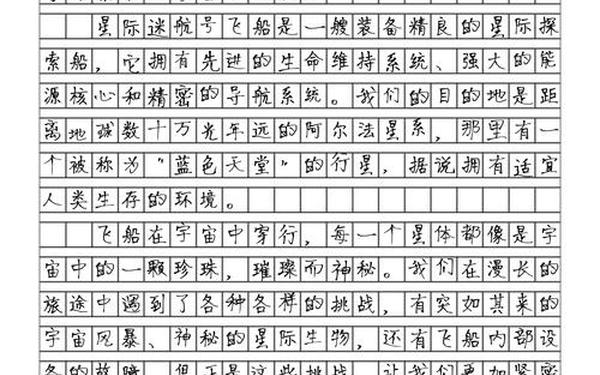 星际迷航号飞船是一艘装备精良的星际探
索船，它拥有先进的生命维持系统、强大的能
源核心和精密的导航系统。我们的目的地是距
离地球数十万光年远的阿尔法星系，那里有一
个被称为"蓝色天堂"的行星，据说拥有适宜
人类生存的环境。
飞船在宇宙中穿行，每一个星体都像是宇
宙中的一颗珍珠，璀璨而神秘。我们在漫长的
旅途中遇到了各种各样的挑战，有突如其来的
宇宙风暴、神秘的星际生物，还有飞船内部设
备的故障。但正是这些挑战，让我们更加紧密